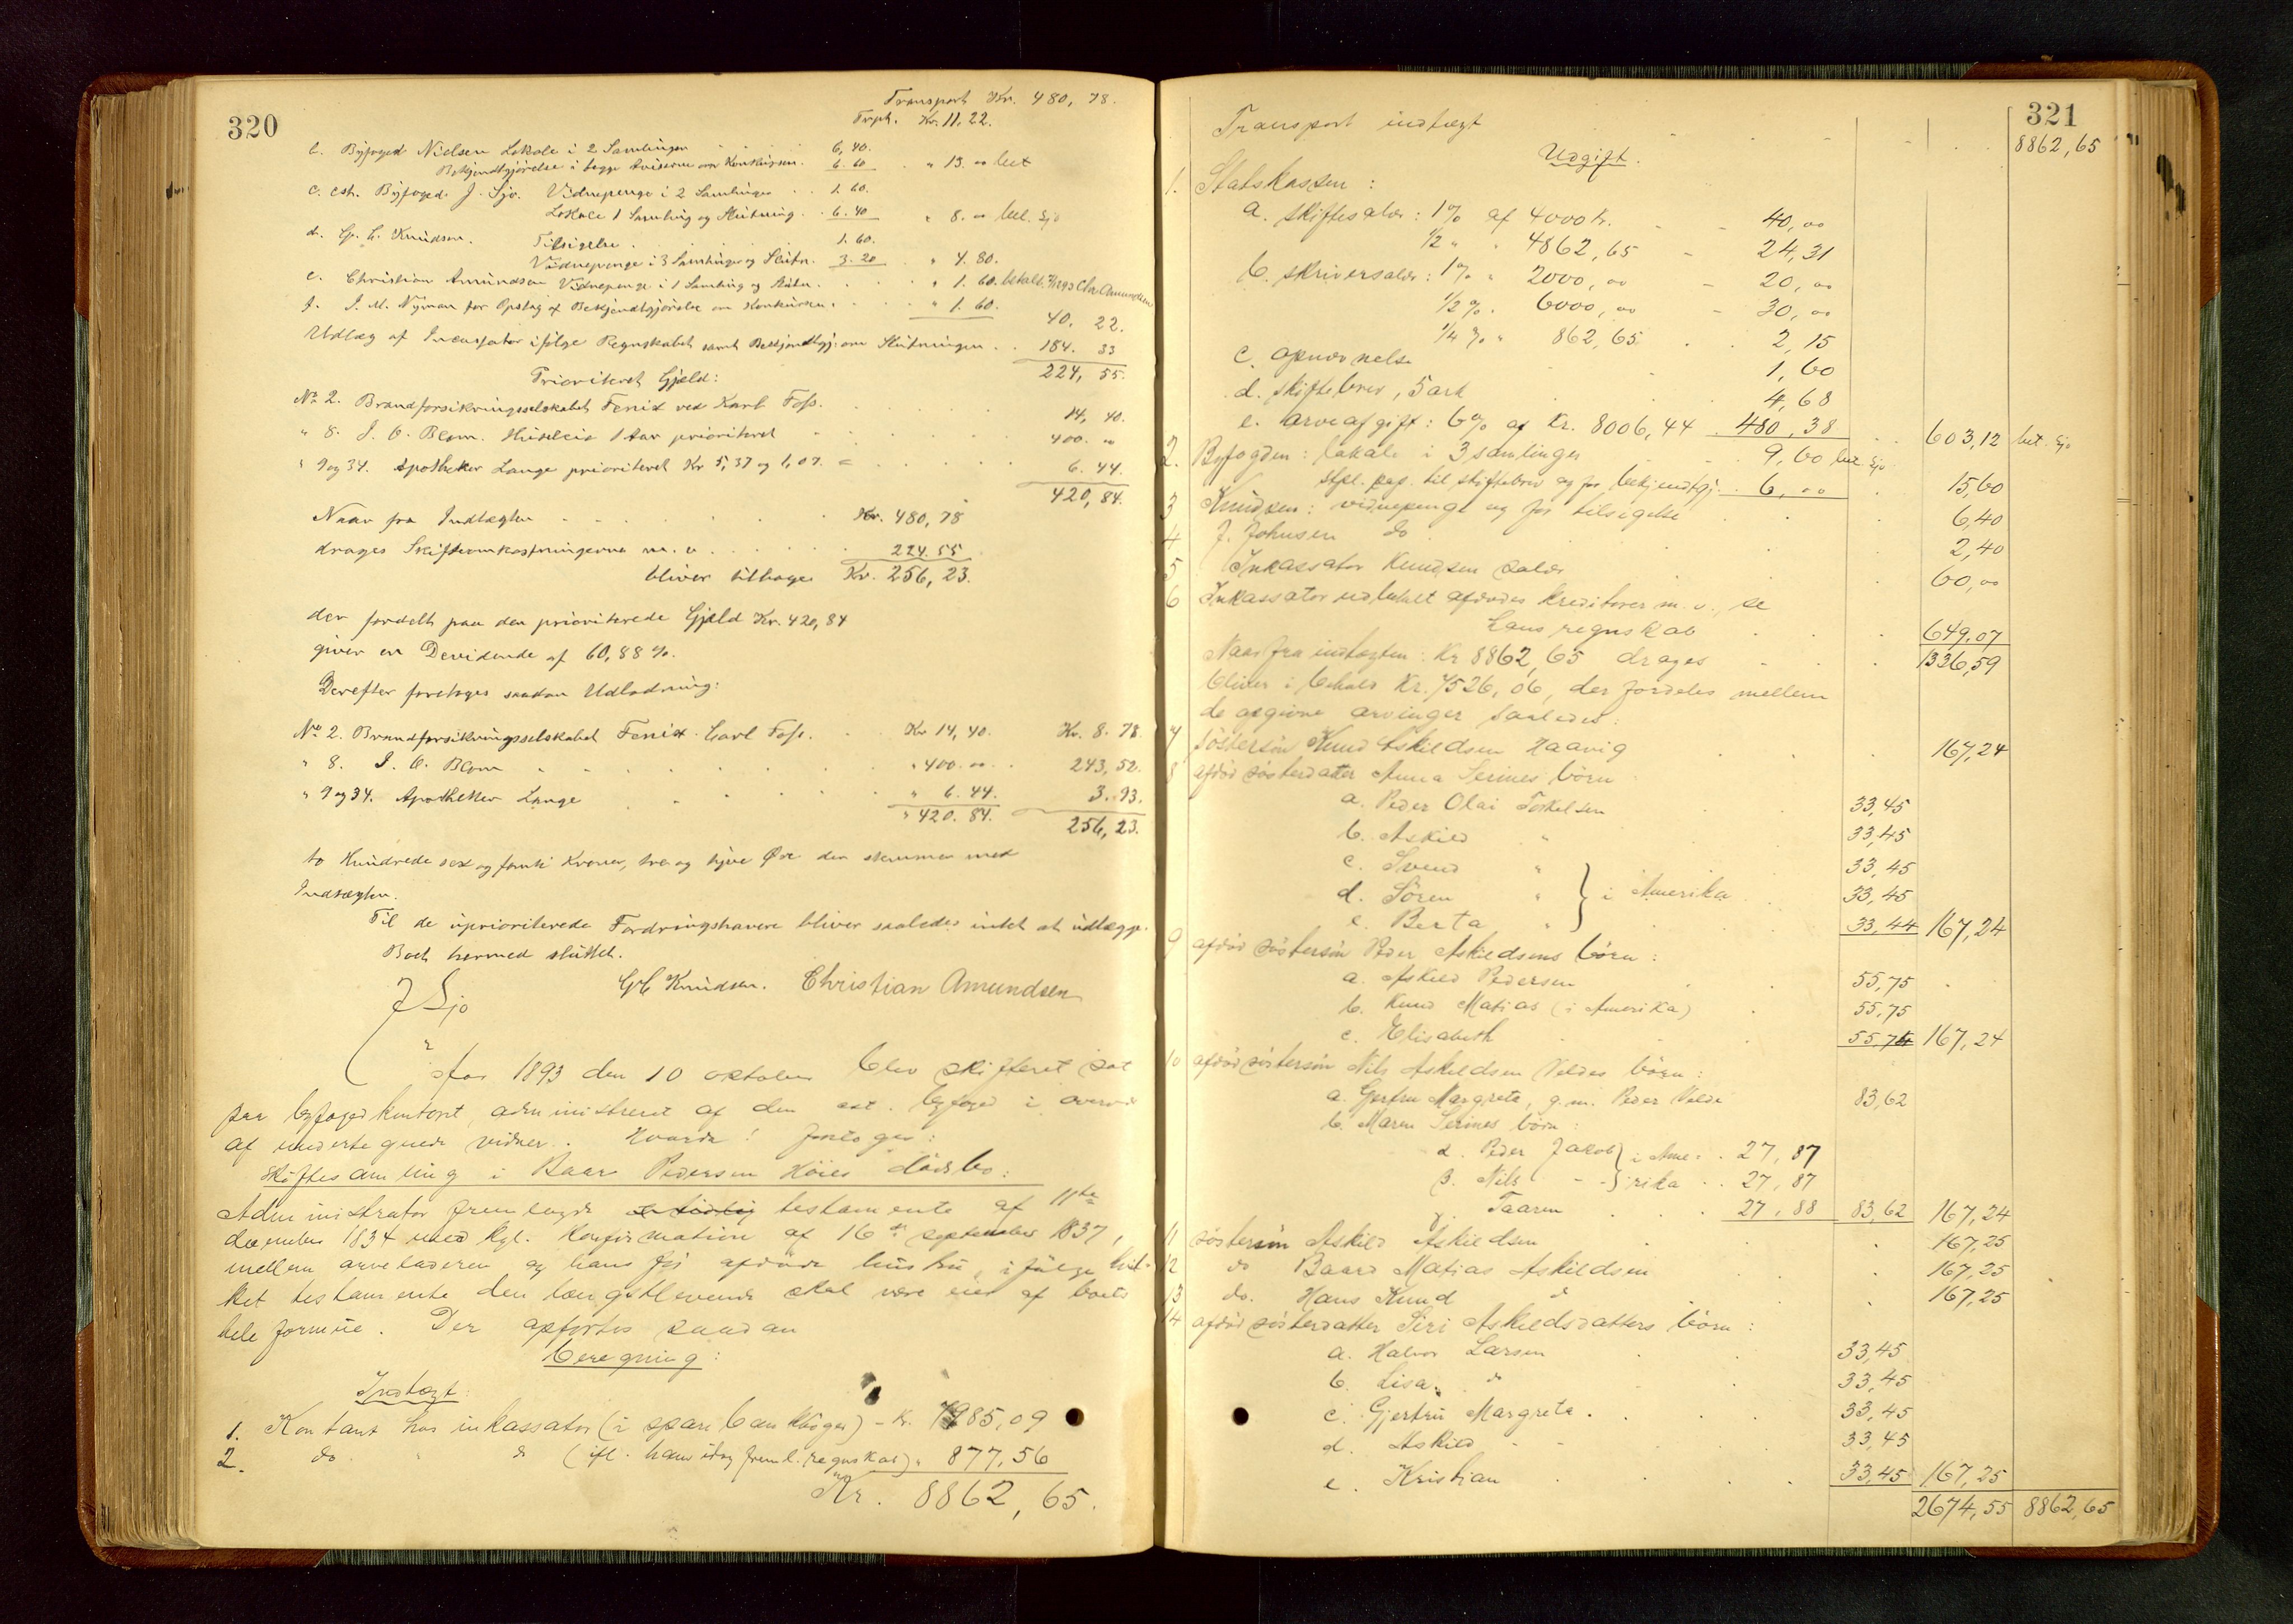 320
Transport Kr. 480, 78.
Trpt. Kr. 11. 22.
b. Byfoged Nielsen Lokale i 2 Samlinger 6, 40.
Bekjendtgjørelse i begge Aviserne om Konkursen. 6. 60 " 13. 00 bet
c. cst. Byfoged J. Sjo. Vidnepenge i 2 Samlinger 1. 60.
Lokale 1 Samling og Slutning. 6. 40 " 8. 00 bet. Sjo
d. G. C. Knudsen. Tilsigelse 1. 60.
Vidnepenge i 3 Samlinger og Slutn. 3. 20 " 4. 80.
e. Christian Amundsen Vidnepenge i 1 Samling og Slutn. " 1. 60. betalt Chr Amundsen
f. J. M. Nyman for Opslag af Bekjendtgjørelse om Konkursen. " 1. 60. 40. 22.
Udlæg af Incassator ifølge Regnskabet samt Bekjendtgj. om Slutningen 184. 33
224, 55.
Prioriteret Gjæld:
No 2. Brandforsikringsselskabet Fenix ved Karl Foss. 14, 40.
" 8. J. C. Blom. Husleie 1 Aar prioriteret 400. 00
" 9 og 34. Apotheker Lange prioriteret Kr 5, 37 og 1, 07. = 6. 44.
420, 84.
Naar fra Indtægten Kr. 480, 78
drages Skifteomkostningerne m. v. 224. 55
bliver tilbage Kr. 256, 23.
der fordelt paa den prioriterede Gjæld Kr. 420, 84
giver en Devidende af 60,88 %.
Derefter foretoges saadan Udlodning:
No 2. Brandforsikringsselskabet Fenix - Carl Foss. Kr 14, 40. Kr. 8. 78
" 8. J. C. Blom " 400. 00 243, 52.
" 9 og 34. Apotheker Lange " 6. 44. 3. 93.
" 420. 84. 256, 23.
to Hundrede sex og femti Kroner, tre og tyve Øre der stemmer med
Indtægten.
Til de uprioriterede Fordringshavere bliver saaledes intet at udlægge.
Boet hermed sluttet.
J Sjo G C Knudsen. Christian Amundsen
Aar 1893 den 10 oktober blev skifteret sat
paa byfogedkontoret, administreret af den cst. byfoged i overvær
af undertegnede vidner. Hvorda! foretoges:
skiftesamling i Baar Pedersen Höies dödsbo:
Administrator fremlagde testamente af 11te
december 1834 med kgl. konfirmation af 16de september 1837,
mellem arveladeren og hans før afdøde hustru, ifølge hvil-
ket testamente den længstlevende skal være eier af boets
hele formue. Der opførtes saadan
beregning:
Indtægt:
1. Kontant hos inkassator (i sparebankbøger) - Kr. 7985,09
2. do " do (ifl. hans idag freml. regnskab) " 877,56
Kr. 8862, 65.
321
Transport indtægt 8862, 65
Udgift.
1. Statskassen:
a. skiftesalær: 1% af 4000 kr. 40, 00
1/2 " " 4862, 65 24, 31
b. skriversalær: 1% " 2000, 00 20, 00
1/2 % " 6000, 00 30, 00
1/4 % " 862, 65 2, 15
c. opnævnelse 1, 60
d. skiftebrev, 5 ark 4, 68
e. arveafgift: 6% af Kr. 8006, 44 480, 38 603, 12 bet. Sjo
2. Byfogden: lokale i 3 samlinger 9, 60 bet. Sjo
stpl. pap. til skiftebrev og for bekjendtgj. 6, 00 15, 60
3 Knudsen: vidnepenge og for tilsigelse 6, 40
4 J. Johnsen do 2, 40
5 Inkassator Knudsen salær 60, 00
6 Inkassator udbetalt afdødes kreditorer m. v., se
hans regnskab 649, 07
Naar fra indtægten: Kr 8862, 65 drages 1336, 59
bliver i behold Kr. 7526, 06, der fordeles mellem
de opgivne arvinger saaledes:
7 söstersön Knud Askildsen Haavig 167, 24
8 afdød søsterdatter Anna Serines börn
a. Peder Olai Torkelsen 33, 45
b. Askild " 33, 45
c. Svend " 33, 45
d. Sören " } i Amerika 33, 45
e. Berta " 33, 44 167, 24
9 afdød søstersön Peder Askildsens börn:
a. Askild Pedersen 55, 75
b. Knud Matias (i Amerika) 55, 75
c. Elisabeth 55, 74 167, 24
10 afdød søstersön Nils Askildsen Veldes börn:
a. Gjertru Margrete, g. m. Peder Velde 83, 62
b. Maren Serines börn:
α. Peder Jakob } i Ame- 27, 87
β. Nils - - } rika 27, 87
γ. Taaren 27, 88 83, 62 167, 24
11 søstersön Askild Askildsen 167, 25
12 do Baard Matias Askildsen 167, 25
13 do. Hans Knud " 167, 25
14 afdød søsterdatter Siri Askildsdatters börn:
a. Halvor Larsen 33, 45
b. Lisa " 33, 45
c. Gjertru Margrete 33, 45
d. Askild 33, 45
e. Kristian 33, 45 167, 25
2674, 55 8862, 65